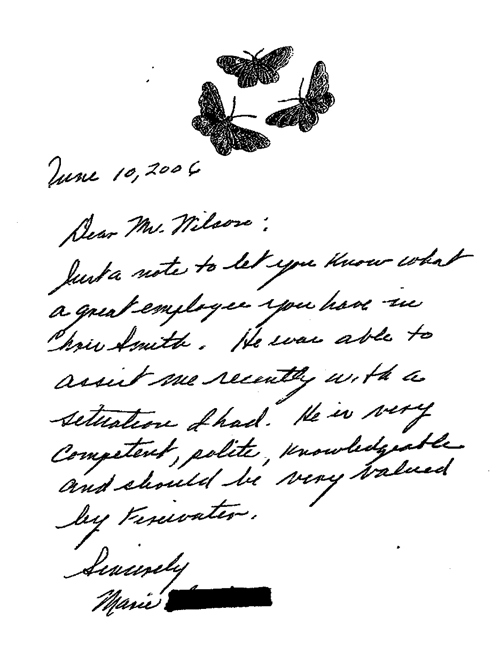 June 10, 2006
Dear Mr. Wilson:
Just a note to let you know what
a great employee you have in
Chris Smith. He was able to
assist me recently with a
situation I had. He is very
competent, polite, knowledgeable
and should be very valued
by Firewater.
Sincerely
Marie